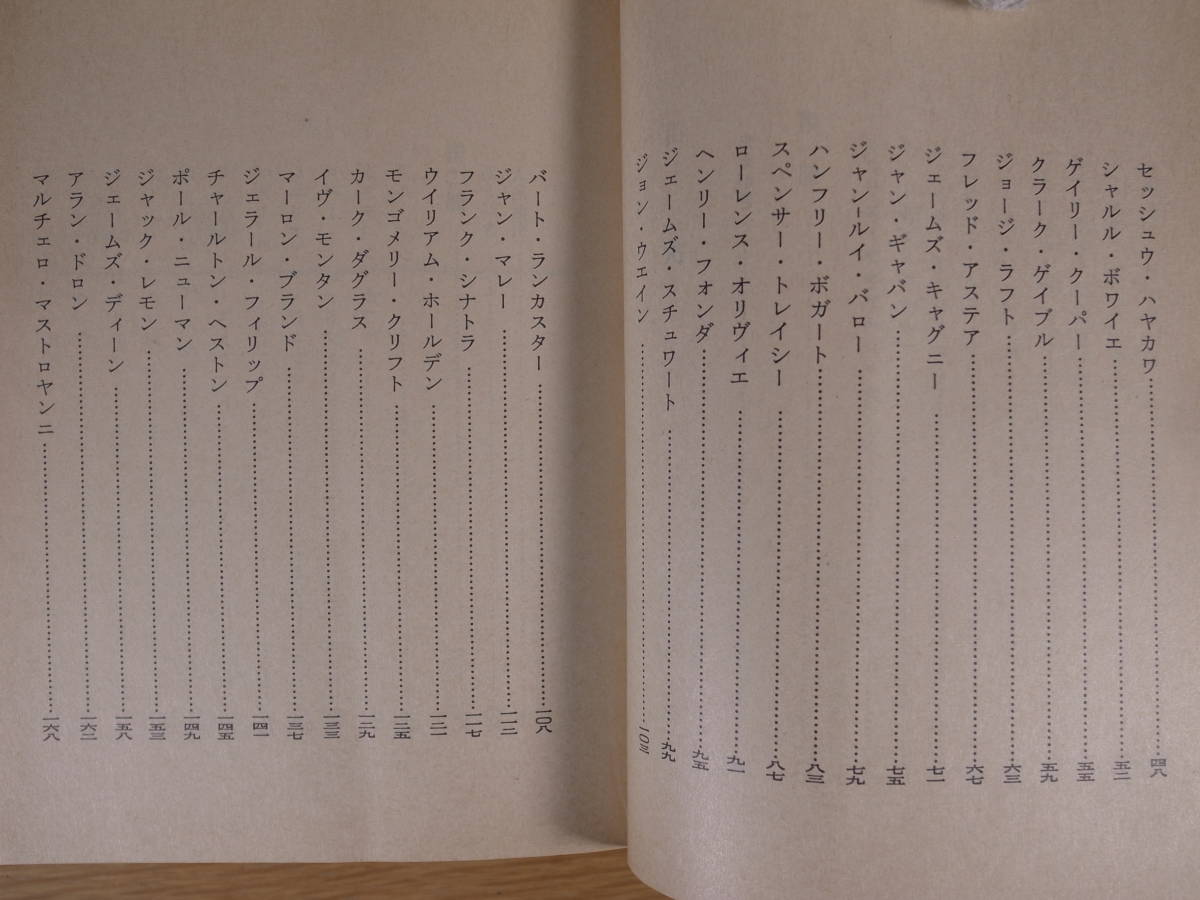 セッシュウ・ハヤカワ……四八
シャルル・ボワイエ……五二
ゲイリー・クーパー……五五
クラーク・ゲイブル……五九
ジョージ・ラフト……六三
フレッド・アステア……六七
ジェームズ・キャグニー……七一
ジャン・ギャバン……七五
ジャン=ルイ・バロー……七九
ハンフリー・ボガート……八三
スペンサー・トレイシー……八七
ローレンス・オリヴィエ……九一
ヘンリー・フォンダ……九五
ジェームズ・スチュワート……九九
ジョン・ウエイン……一〇三
バート・ランカスター……一〇八
ジャン・マレー……一一三
フランク・シナトラ……一一七
ウイリアム・ホールデン……一二一
モンゴメリー・クリフト……一二五
カーク・ダグラス……一二九
イヴ・モンタン……一三三
マーロン・ブランド……一三七
ジェラール・フィリップ……一四一
チャールトン・ヘストン……一四五
ポール・ニューマン……一四九
ジャック・レモン……一五三
ジェームズ・ディーン……一五八
アラン・ドロン……一六二
マルチェロ・マストロヤンニ……一六八